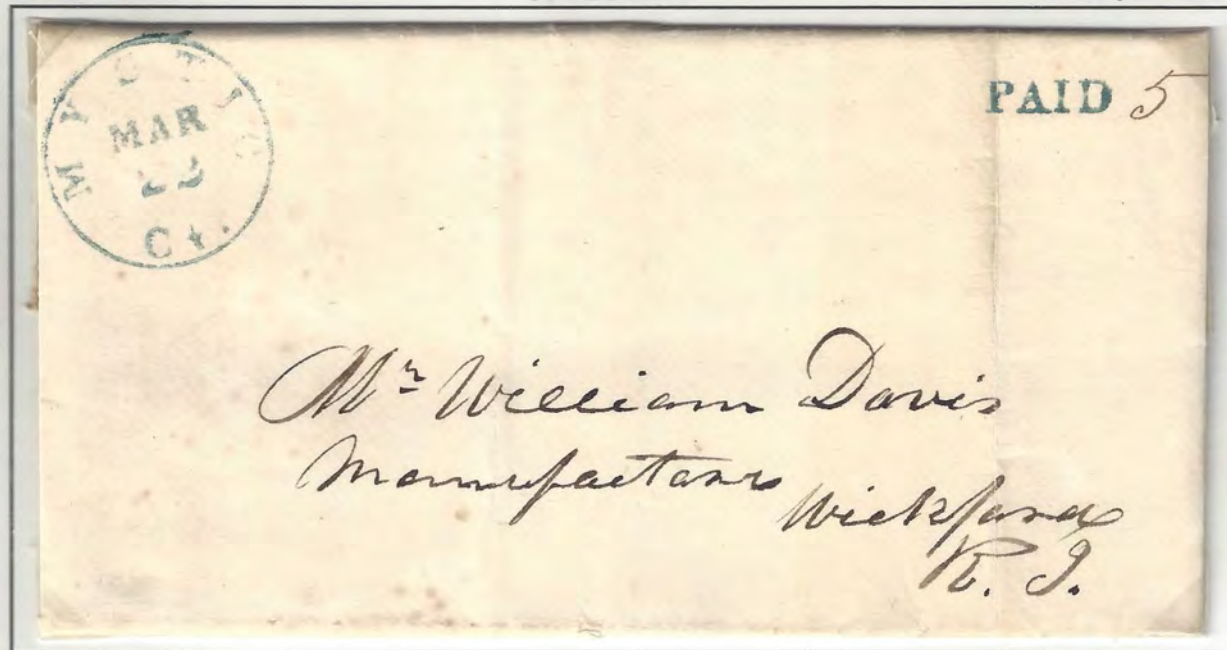 MYSTIC
MAR
22
Ct.
PAID 5
Mr William Davis
Manufacturer
Wickford
R. I.